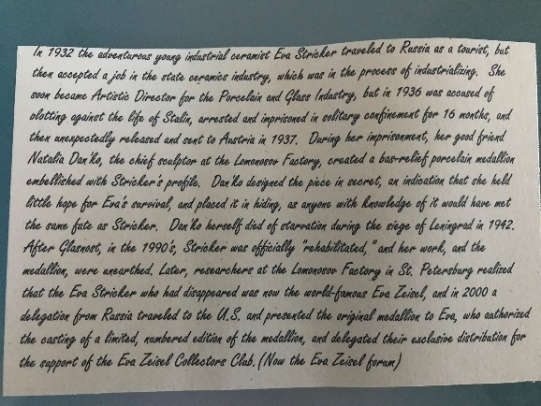 In 1932 the adventurous young industrial ceramist Eva Stricker traveled to Russia as a tourist, but
then accepted a job in the state ceramics industry, which was in the process of industrializing. She
soon became Artistic Director for the Porcelain and Glass Industry, but in 1936 was accused of
plotting against the life of Stalin, arrested and imprisoned in solitary confinement for 16 months, and
then unexpectedly released and sent to Austria in 1937. During her imprisonment, her good friend
Natalia Dan'ko, the chief sculptor at the Lomonosov Factory, created a bas-relief porcelain medallion
embellished with Stricker's profile. Danko designed the piece in secret, an indication that she held
little hope for Eva's survival, and placed it in hiding, as anyone with knowledge of it would have met
the same fate as Stricker. Dan'ko herself died of starvation during the siege of Leningrad in 1942.
After Glasnost, in the 1990's, Stricker was officially "rehabilitated," and her work, and the
medallion, were unearthed. Later, researchers at the Lomonosov Factory in St. Petersburg realized
that the Eva Stricker who had disappeared was now the world-famous Eva Zeisel, and in 2000 a
delegation from Russia traveled to the U.S. and presented the original medallion to Eva, who authorized
the casting of a limited, numbered edition of the medallion, and delegated their exclusive distribution for
the support of the Eva Zeisel Collectors Club. (Now the Eva Zeisel forum)